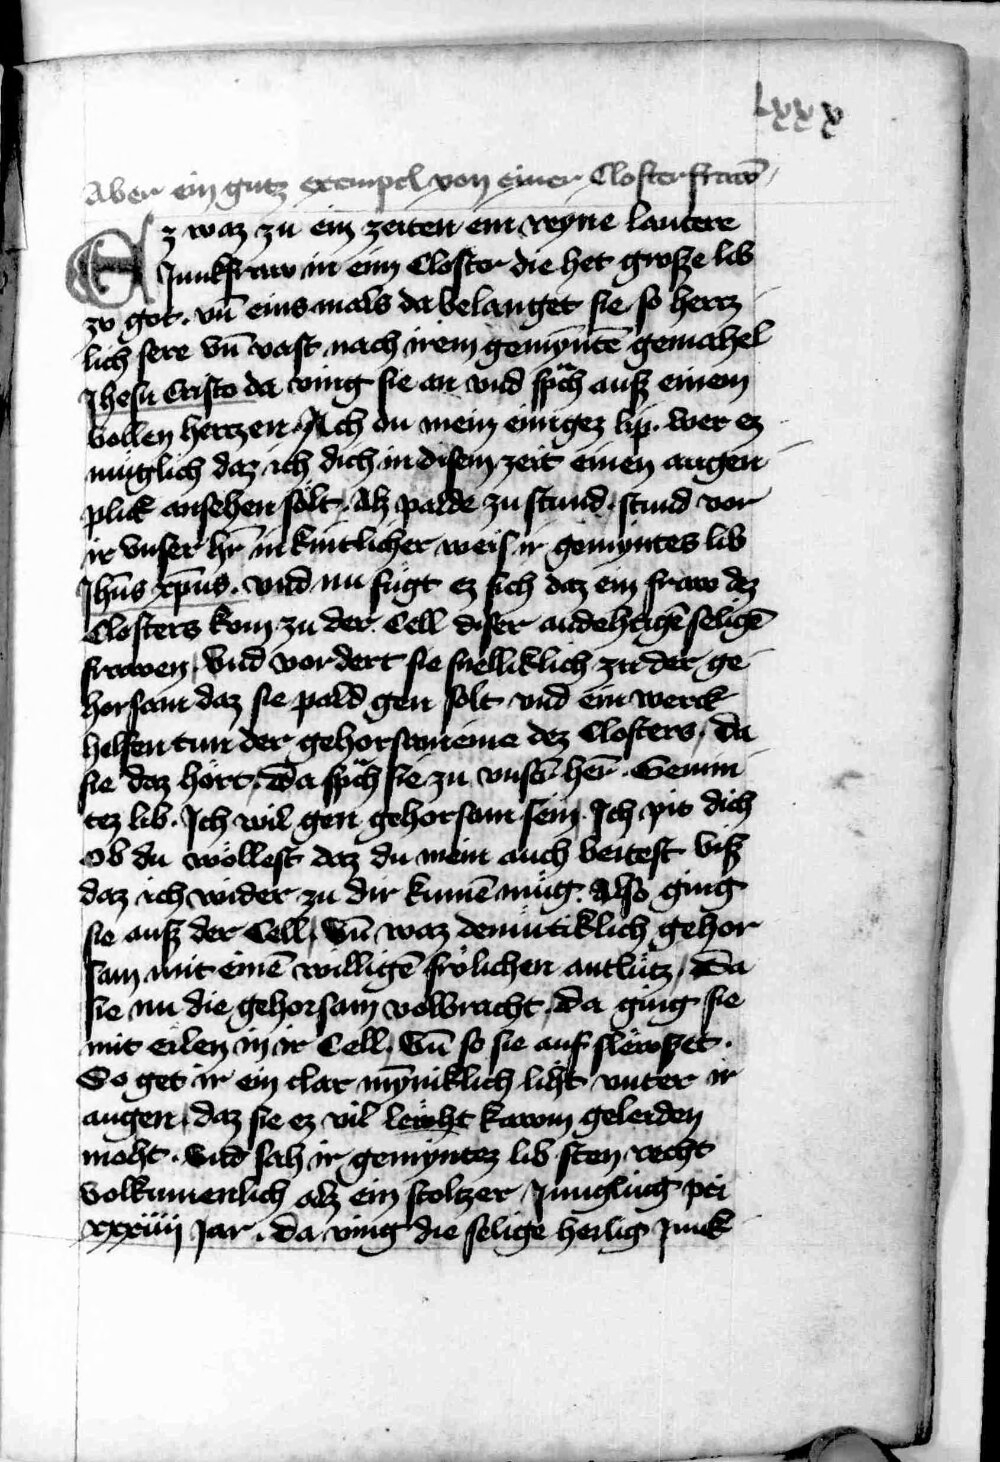 Lxxx
Aber ein gutz exempel von einer Closterfrawē
Ez waz zu ein zeiten ein reyne lautere
Junkfraw in eim Closter die het große lib
zv got. vn̄ eins mals da belanget sie so hertz
lich sere vn̄ vast nach irem gemȳntē gemahel
Jhesu Cristo da ving sie an vnd sp̄ch auß einem
vollen hertzen. Ach du mein einigez lip. wer ez
muglich daz ich dich in disem zeit einen augen
plick ansehen sölt. Alz palde zu stund. stund vor
ir vnser hr̄ in kintlicher weis ir gemyntes lib
Jhūs xp̄us. vnd nu fügt ez sich daz ein fraw dez
Closters kom zu der Cell diser andehtigē seligē
frawen. Vnd vordert sie snelliklich zu der ge
horsam daz sie pald gen solt vnd ein werck
helfen tun der gehorsam dez Closters. Da
sie daz hört. Da sp̄ch sie zu vnsm̄ hēr. Gemin
tez lib. Ich wil gen gehorsam sein. Ich pit dich
ob du wöllest daz du mein auch beitest biß
daz ich wider zu dir kumē müg. Also ging
sie auß der Cell. Vn̄ waz demütiklich gehor
sam mit einē willigē frölichen antlütz. Da
sie nu die gehorsam volbracht. Da ging sie
mit eilen in ir Cell. Vn̄ so sie auf slewßet.
So get ir ein clar mȳniklich liht vnter ir
augen. daz sie ez vil leiht kawm geleiden
moht. Vnd sah ir gemyntez lib sten recht
volkumenlich alz ein stoltzer Jungling pei
xxxiiij Jar. Da ving die selige heilig Junk